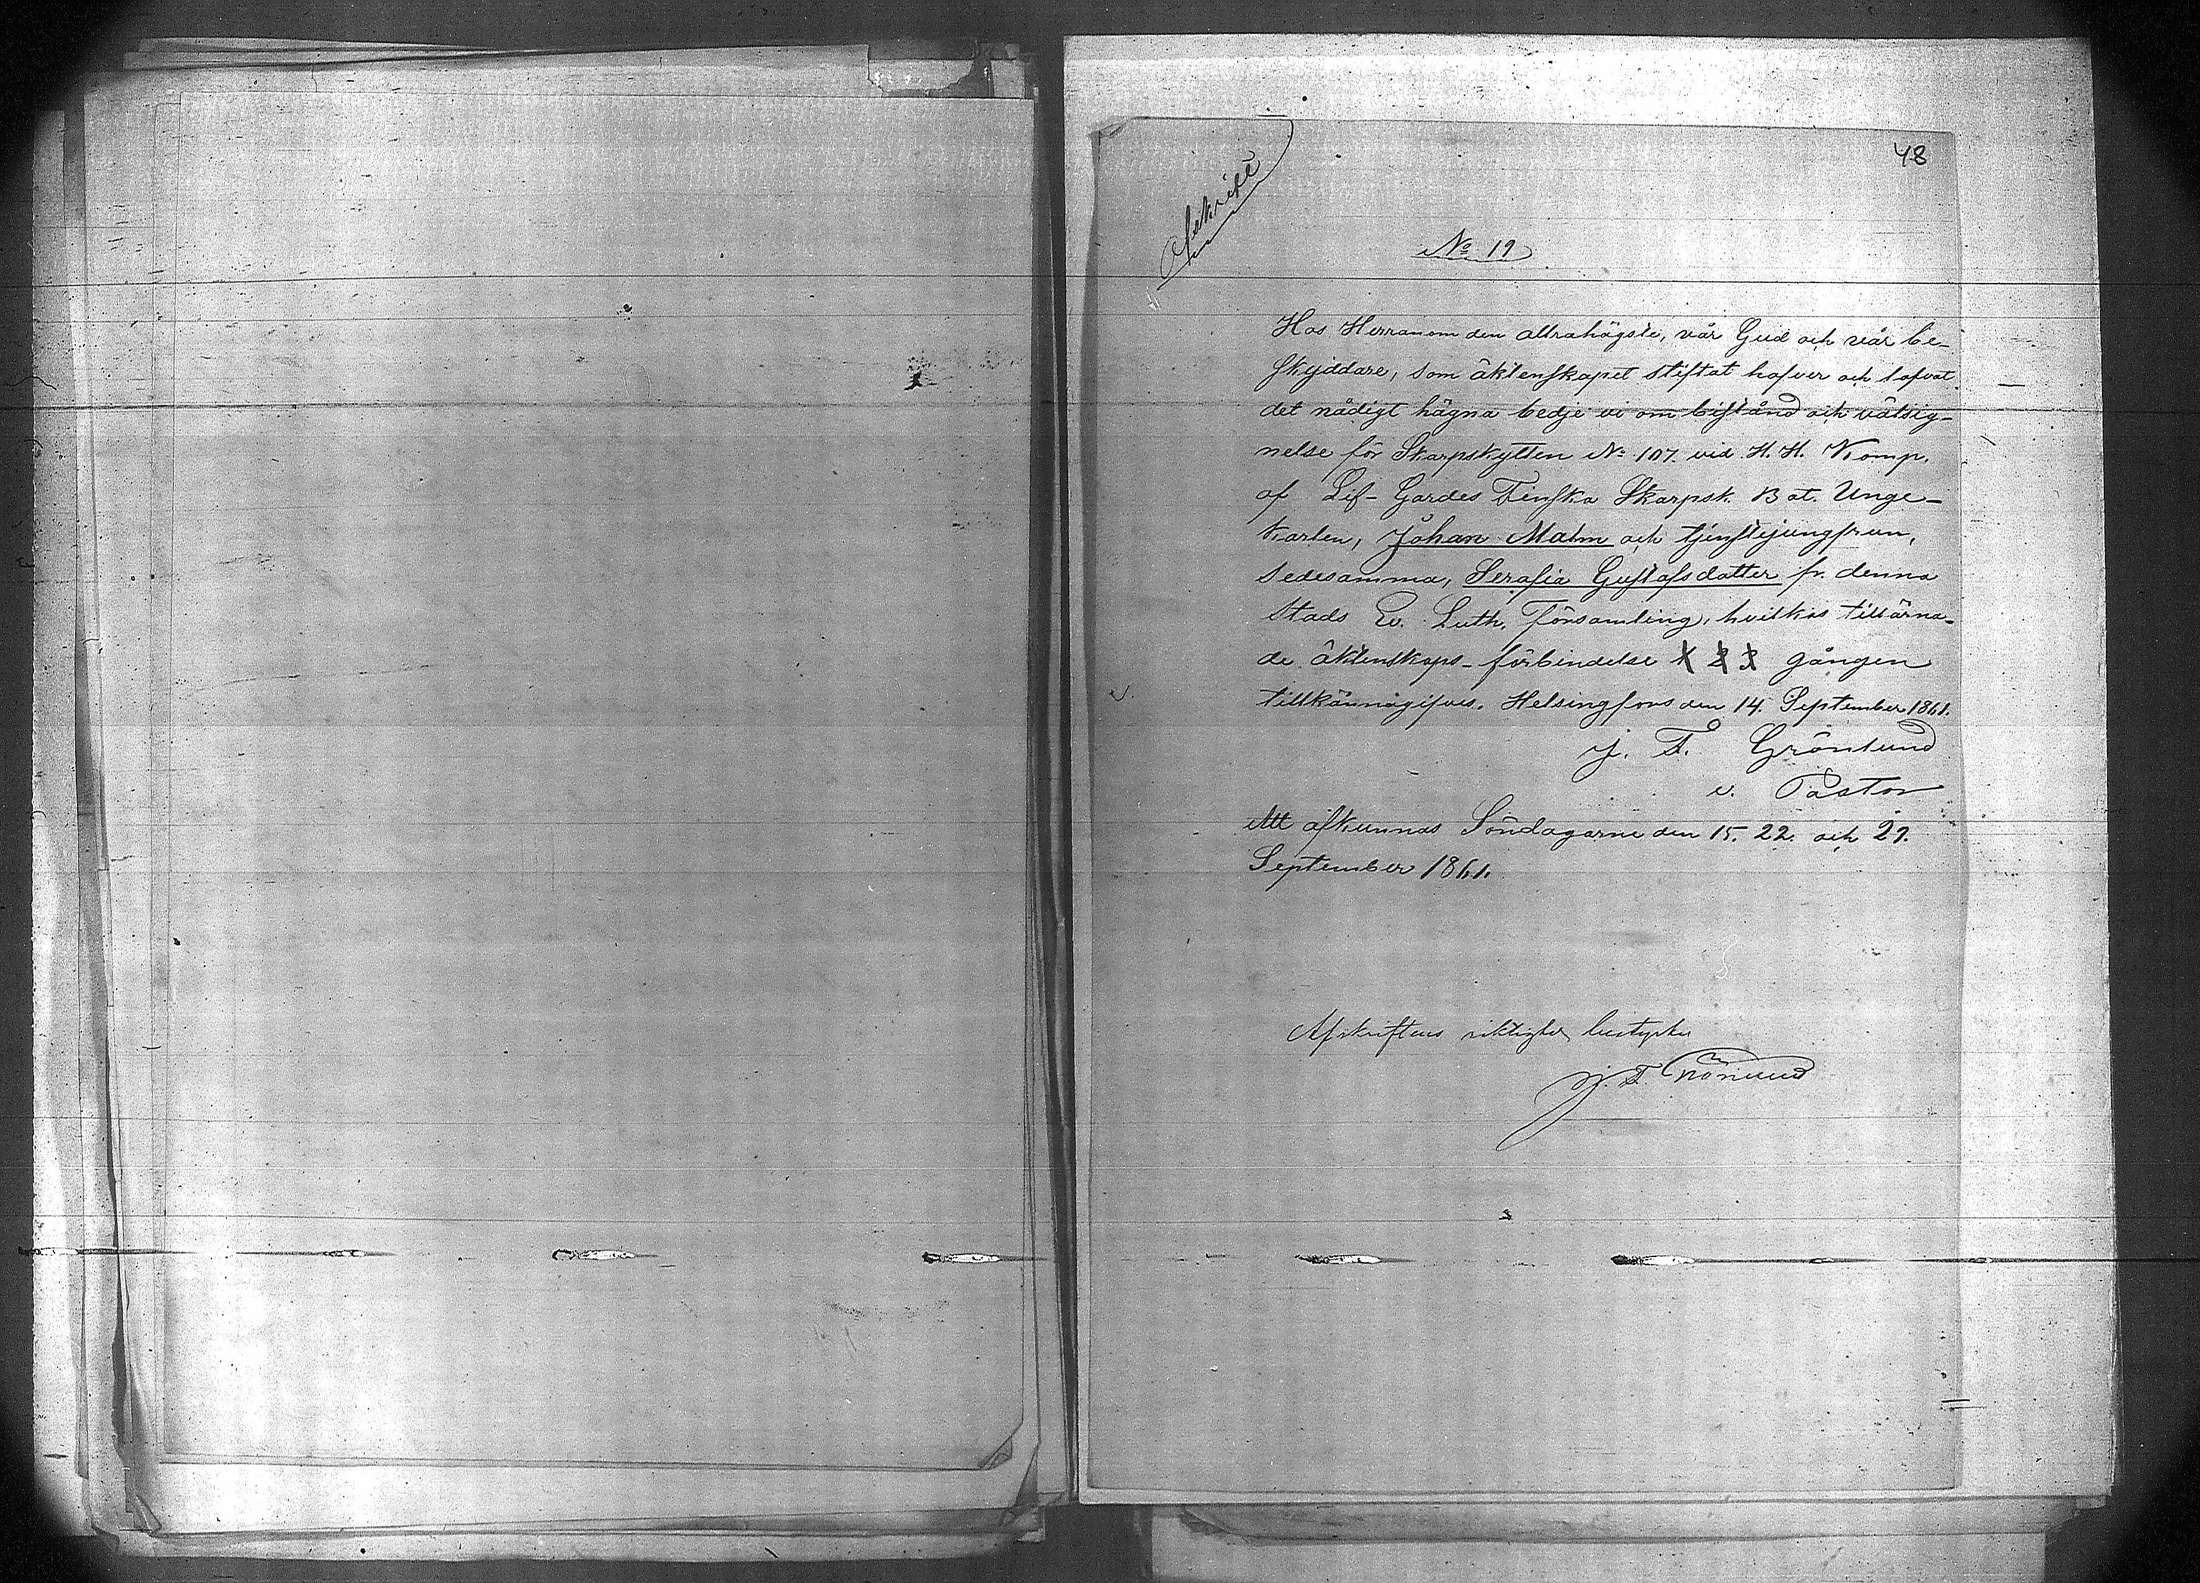 48
Afskrift
No 19
Hos Herranom den allrahögste, vår Gud och vår be-
skyddare, som äktenskapet stiftat hafver och lofvat
det nådigt hägna bedje vi om bistånd och välsig-
nelse för Skarpskytten No 107. vid H. H. Komp.
af Lif-Gardes Finska Skarpsk. Bat. Unge-
karlen, Johan Malm och tjenstejungfrun,
sedesamma, Serafia Gustafsdotter fr. denna
stads Ev. Luth. Församling, hvilkas tillärna-
de äktenskaps-förbindelse 1 2 3 gången
tillkännagifves. Helsingfors den 14 September 1861.
J. F. Grönlund
v. Pastor
Att afkunnas Söndagarne den 15. 22. och 29.
September 1861.
Afskriftens riktighet bestyrker
J. F. Grönlund